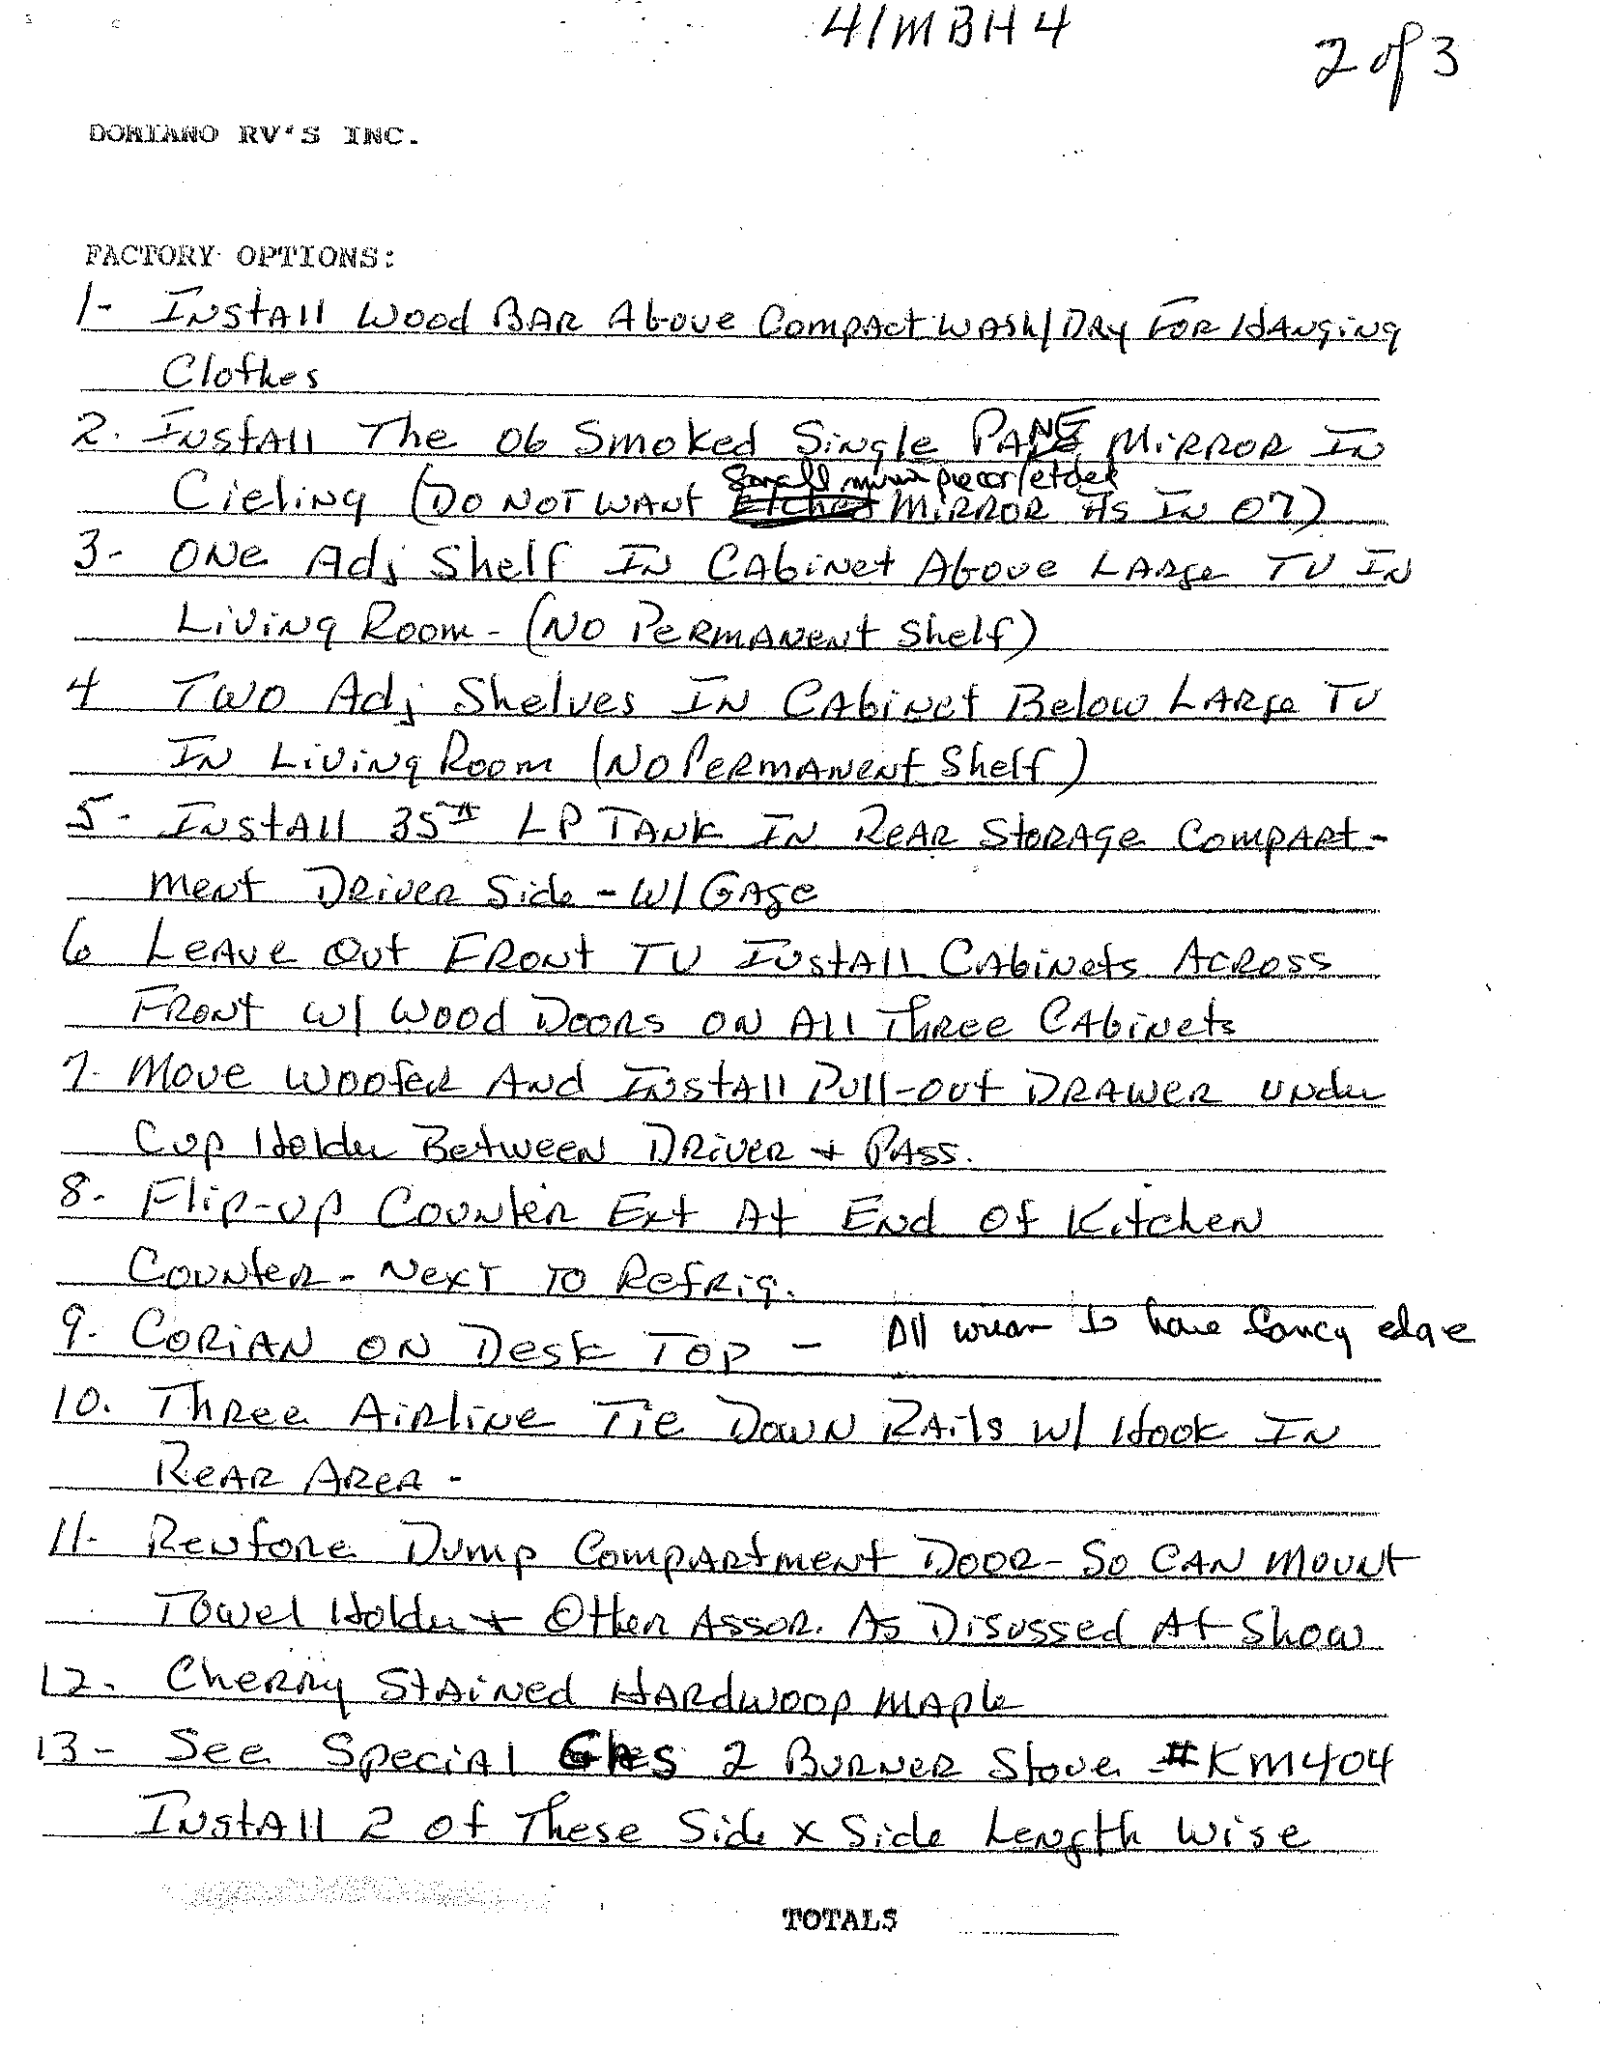 41MBH4
2 of 3
DOMIANO RV'S INC.
FACTORY OPTIONS:
1- Install Wood Bar Above Compact Wash/Dry For Hanging
Clothes
2. Install The 06 Smoked Single Pane Mirror In
Small mirror pieces/etched
Cieling (Do Not Want Etched Mirror As In 07)
3- One Adj Shelf In Cabinet Above Large TV In
Living Room - (No Permanent Shelf)
4 Two Adj Shelves In Cabinet Below Large TV
In Living Room (No Permanent Shelf)
5- Install 35# LP Tank In Rear Storage Compart-
ment Driver Side - W/ Gage
6 Leave Out Front TV Install Cabinets Across
Front w/ Wood Doors On All Three Cabinets
7- Move Woofer And Install Pull-out Drawer Under
Cup Holder Between Driver + Pass.
8- Flip-up Counter Ext At End Of Kitchen
Counter - Next To Refrig.
9- Corian On Desk Top - All to have fancy edge
10. Three Airline Tie Down Rails w/ Hook In
Rear Area -
11- Renfore Dump Compartment Door - So Can Mount
Towel Holder + Other Assor. As Disussed At Show
12. Cherry Stained Hardwood Maple
13- See Special Gas 2 Burner Stove #KM404
Install 2 of These Side x Side Length Wise
TOTALS